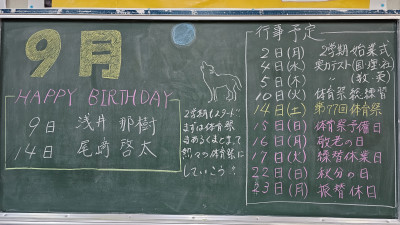 9月
HAPPY BIRTHDAY
9日 浅井 那樹
14日 尾﨑 啓太
2学期もスタート
まずは体育祭
きめるくまとまって
熱々の体育祭に
していこう！
行事予定
2日(月) 2学期始業式
4日(水) 実力テスト(国理英)
5日(木) 〃 (数英)
10日(火) 体育祭総練習
14日(土) 第77回体育祭
15日(日) 体育祭予備日
16日(月) 敬老の日
17日(火) 振替休業日
22日(日) 秋分の日
23日(月) 振替休日